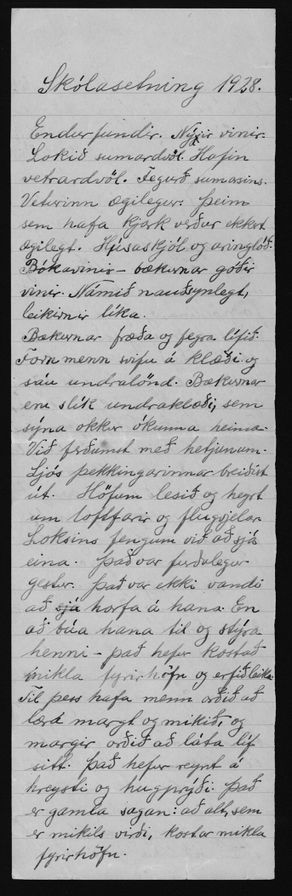 Skólasetning 1928.
Endurfundir. Nýir vinir.
Lokið sumardvöl. Hafin
vetrardvöl. Fegurð sumarsins.
Veturinn ægilegur. Þeim
sem hafa kjark verður ekkert
ægilegt. Húsaskjól og aringlóð.
Bókavinir – bækurnar góðir
vinir. Námið nauðsynlegt,
leikirnir líka.
Bækurnar fræða og fegra lífið.
Forn menn svifu á klæði og
sáu undralönd. Bækurnar
eru slík undraklæði, sem
sýna okkur ókunna heima.
Við ferðumst með hetjunum.
Ljós þekkingarinnar breiðist
út. Höfum lesið og heyrt
um loftfarir og flugvjelar.
Loksins fengum við að sjá
eina. Það var furðulegur
gestur. Það var ekki vandi
að sjá horfa á hana. En
að búa hana til og stýra
henni – það hefur kostað
mikla fyrirhöfn og erfiðleika.
Til þess hafa menn orðið að
læra margt og mikið, og
margir orðið að láta líf
sitt. Það hefur reynt á
hreysti og hugprýði. Það
er gamla sagan: að alt, sem
er mikils virði, kostar mikla
fyrirhöfn.